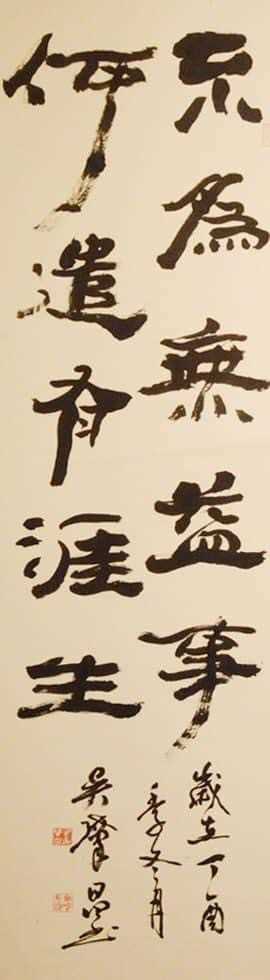 不為無益事
何遣有涯生
歲在丁酉
季冬月
吳肇昌書